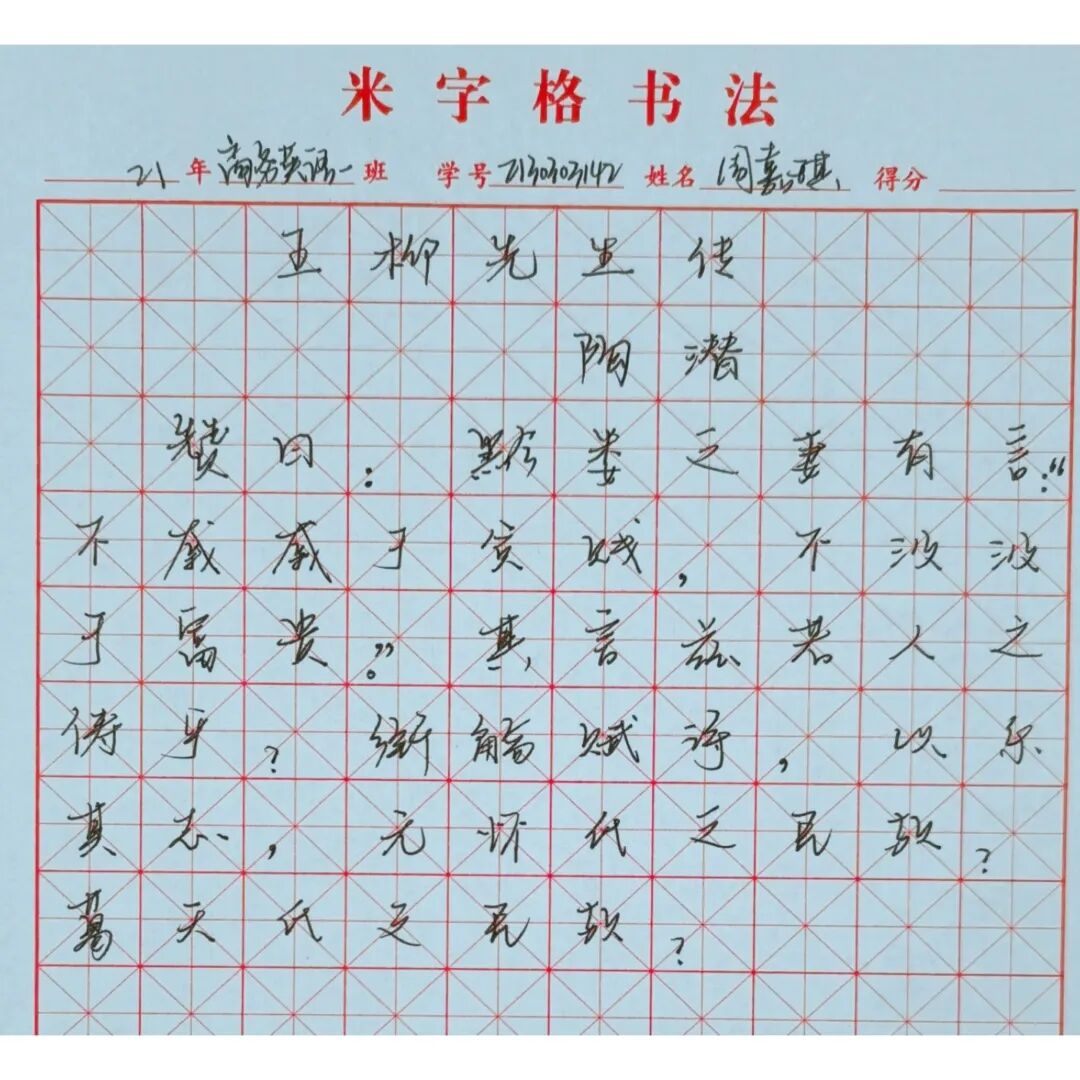 米字格书法
21年商务英语一班 学号2130303142 姓名周嘉琪 得分
五柳先生传
陶潜
赞曰：黔娄之妻有言：“
不戚戚于贫贱，不汲汲
于富贵。”其言兹若人之
俦乎？衔觞赋诗，以乐
其志，无怀氏之民欤？
葛天氏之民欤？